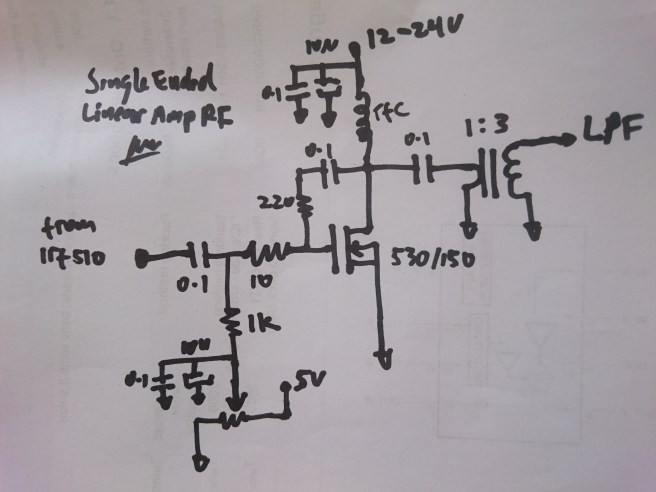 12-24V
10N
Single Ended
Linear Amp RF
0.1
rfc
0.1
0.1
1:3
LPF
220
from
irf510
530/150
0.1
10
1K
10U
0.1
5V